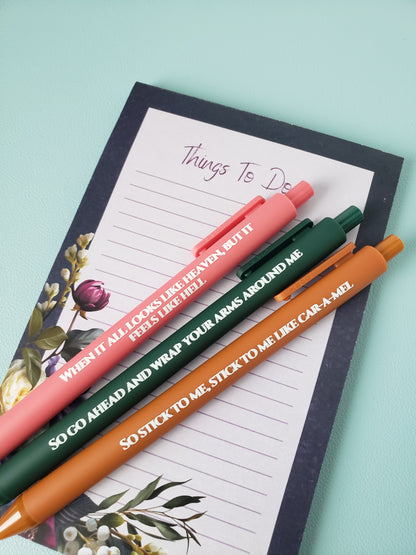 Things To Do
WHEN IT ALL LOOKS LIKE HEAVEN, BUT IT
FEELS LIKE HELL
SO GO AHEAD AND WRAP YOUR ARMS AROUND ME
SO STICK TO ME, STICK TO ME LIKE CAR-A-MEL